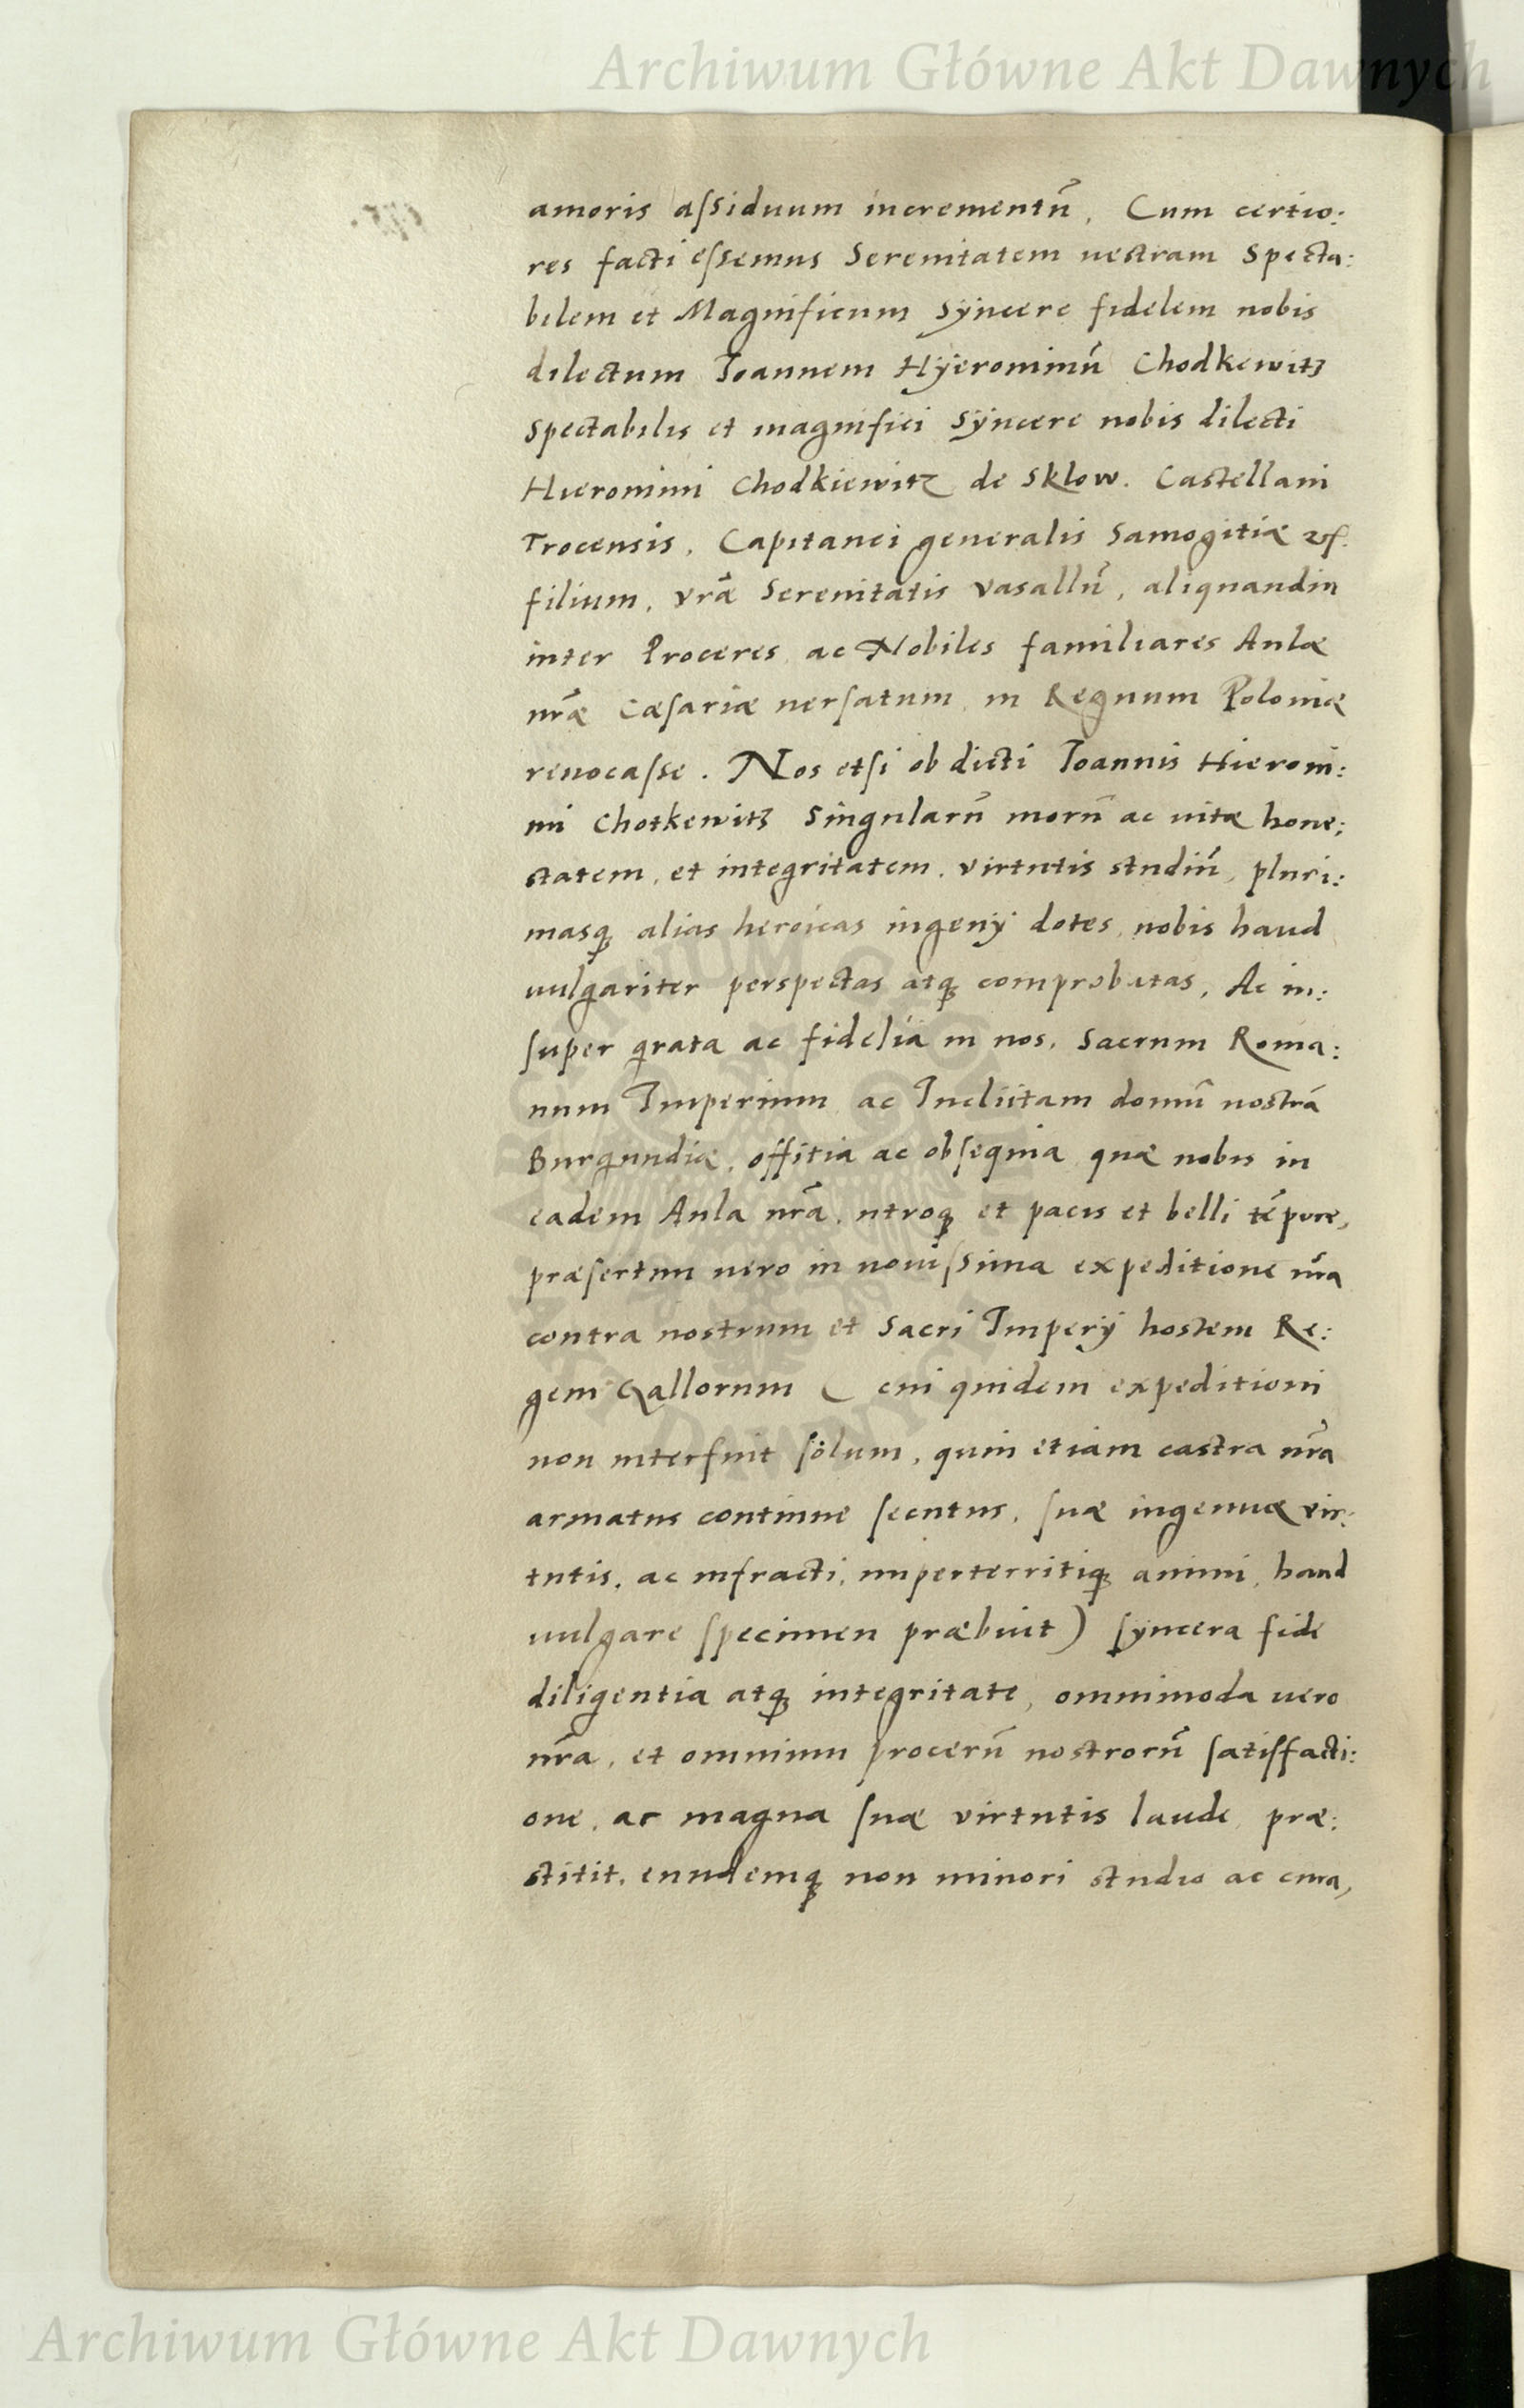 Archiwum Główne Akt Dawnych
amoris assiduum incrementū, Cum certio:
res facti essemus Serenitatem uestram Specta:
bilem et Magnificum Syncere fidelem nobis
dilectum Ioannem Hyerominū Chodkewitz
Spectabilis et magnifici Syncere nobis dilecti
Hieronimi Chodkiewitz de Sklow. Castellani
Trocensis, Capitanei generalis Samogitiæ
filium, vrǣ Serenitatis vasallū, aliquandiu
inter Proceres ac Nobiles familiares Aulæ
nrǣ Cæsariæ uersatum, in Regnum Poloniæ
reuocasse. Nos etsi ob dicti Ioannis Hieroni:
mi Chotkewitz Singularū morū ac uitæ hone:
statem, et integritatem, virtutis studiū, pluri:
masq; alias heroicas ingenij dotes, nobis haud
uulgariter perspectas atq; comprobatas, Ac in:
super grata ac fidelia in nos, Sacrum Roma:
num Imperium, ac Inclÿtam domū nostrā
Burgundiæ, offitia ac obsequia, quæ nobis in
eadem Aula nrā, utroq; et pacis et belli tēpore,
præsertim uero in nouissima expeditione nrā
contra nostrum et Sacri Imperij hostem Re:
gem Gallorum ( cui quidem expeditioni
non interfuit sòlum, quin etiam castra nrā
armatus continue secutus, suæ ingenuæ vir:
tutis, ac infracti, imperterritiq; animi, haud
uulgare specimen præbuit) syncera fide
diligentia atq; integritate, omnimoda uero
nrā, et omnium procerū nostrorū satisfacti:
one, ac magna suæ virtutis laude, præ:
stitit, eundemq; non minori studio ac cura,
Archiwum Główne Akt Dawnych